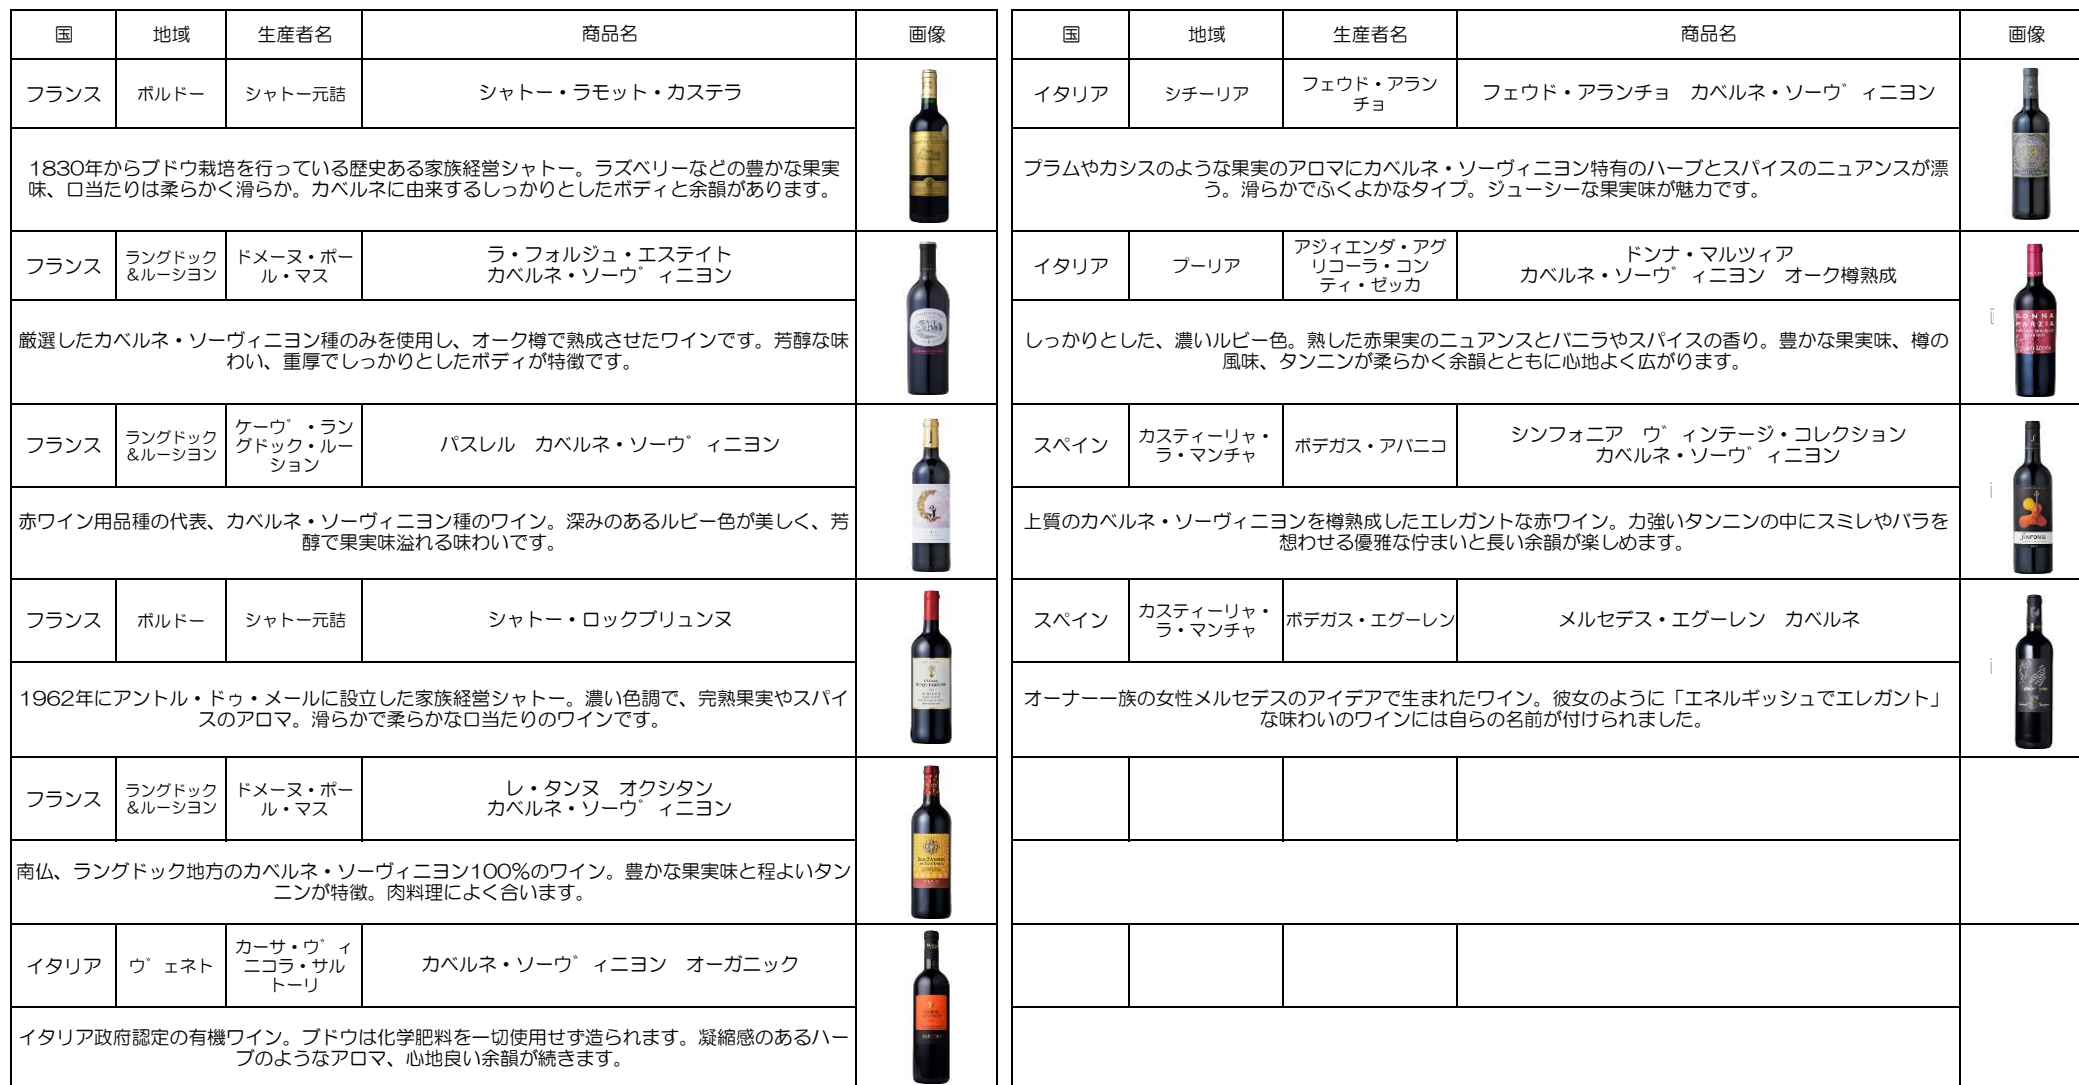 国 地域 生産者名 商品名 画像
フランス ボルドー シャトー元詰 シャトー・ラモット・カステラ
1830年からブドウ栽培を行っている歴史ある家族経営シャトー。ラズベリーなどの豊かな果実
味、口当たりは柔らかく滑らか。カベルネに由来するしっかりとしたボディと余韻があります。
フランス
ラングドック
&ルーシヨン
ドメーヌ・ポー
ル・マス
ラ・フォルジュ・エステイト
カベルネ・ソーヴィニヨン
厳選したカベルネ・ソーヴィニヨン種のみを使用し、オーク樽で熟成させたワインです。芳醇な味
わい、重厚でしっかりとしたボディが特徴です。
フランス
ラングドック
&ルーシヨン
ケーヴ・ラン
グドック・ルー
ション
パスレル カベルネ・ソーヴィニヨン
赤ワイン用品種の代表、カベルネ・ソーヴィニヨン種のワイン。深みのあるルビー色が美しく、芳
醇で果実味溢れる味わいです。
フランス ボルドー シャトー元詰 シャトー・ロックブリュンヌ
1962年にアントル・ドゥ・メールに設立した家族経営シャトー。濃い色調で、完熟果実やスパイ
スのアロマ。滑らかで柔らかな口当たりのワインです。
フランス
ラングドック
&ルーシヨン
ドメーヌ・ポー
ル・マス
レ・タンヌ オクシタン
カベルネ・ソーヴィニヨン
南仏、ラングドック地方のカベルネ・ソーヴィニヨン100%のワイン。豊かな果実味と程よいタン
ニンが特徴。肉料理によく合います。
イタリア ヴェネト
カーサ・ヴィ
ニコラ・サル
トーリ
カベルネ・ソーヴィニヨン オーガニック
イタリア政府認定の有機ワイン。ブドウは化学肥料を一切使用せず造られます。凝縮感のあるハー
ブのようなアロマ、心地良い余韻が続きます。
国 地域 生産者名 商品名 画像
イタリア シチーリア
フェウド・アラン
チョ
フェウド・アランチョ カベルネ・ソーヴィニヨン
プラムやカシスのような果実のアロマにカベルネ・ソーヴィニヨン特有のハーブとスパイスのニュアンスが漂
う。滑らかでふくよかなタイプ。ジューシーな果実味が魅力です。
イタリア プーリア
アジィエンダ・アグ
リコーラ・コン
ティ・ゼッカ
ドンナ・マルツィア
カベルネ・ソーヴィニヨン オーク樽熟成
しっかりとした、濃いルビー色。熟した赤果実のニュアンスとバニラやスパイスの香り。豊かな果実味、樽の
風味、タンニンが柔らかく余韻とともに心地よく広がります。
DONNA
MARZIA
スペイン
カスティーリャ・
ラ・マンチャ
ボデガス・アバニコ
シンフォニア ヴィンテージ・コレクション
カベルネ・ソーヴィニヨン
上質のカベルネ・ソーヴィニヨンを樽熟成したエレガントな赤ワイン。力強いタンニンの中にスミレやバラを
想わせる優雅な佇まいと長い余韻が楽しめます。
SINFONIA
スペイン
カスティーリャ・
ラ・マンチャ
ボデガス・エグーレン
メルセデス・エグーレン カベルネ
オーナー一族の女性メルセデスのアイデアで生まれたワイン。彼女のように「エネルギッシュでエレガント」
な味わいのワインには自らの名前が付けられました。